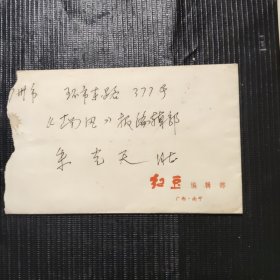 州市
环市东路 377号
《南风》报编辑部
朱光天 同志
红豆 编辑部
广西·南宁